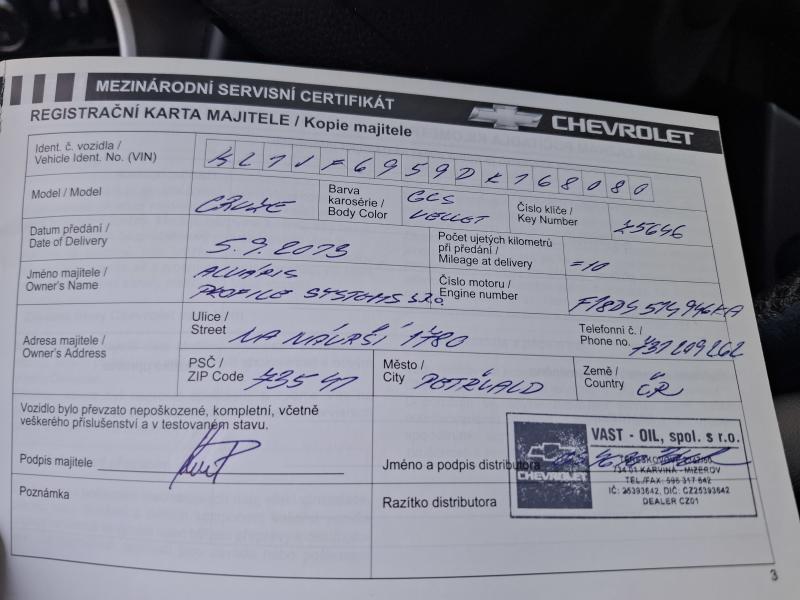 MEZINÁRODNÍ SERVISNÍ CERTIFIKÁT
CHEVROLET
REGISTRAČNÍ KARTA MAJITELE / Kopie majitele
Ident. č. vozidla /
Vehicle Ident. No. (VIN)
KL1JF6959DK168080
Model / Model
CRUZE
Barva
karosérie /
Body Color
GCS
VELVET
Číslo klíče /
Key Number
Z5646
Datum předání /
Date of Delivery
5.9.2013
Počet ujetých kilometrů
při předání /
Mileage at delivery
=10
Jméno majitele /
Owner's Name
ALUVARIS
PROFILE SYSTEMS s.r.o.
Číslo motoru /
Engine number
F18D4 514946KA
Adresa majitele /
Owner's Address
Ulice /
Street
NA NÁVRŠÍ 1780
Telefonní č. /
Phone no.
731 209 262
PSČ /
ZIP Code
735 41
Město /
City
PETŘVALD
Země /
Country
ČR
Vozidlo bylo převzato nepoškozené, kompletní, včetně
veškerého příslušenství a v testovaném stavu.
Podpis majitele
Poznámka
Jméno a podpis distributora
Razítko distributora
CHEVROLET
VAST - OIL, spol. s r.o.
734 01 KARVINÁ - MIZEROV
TEL./FAX: 596 317 642
IČ: 25393642, DIČ: CZ25393642
DEALER CZ01
3